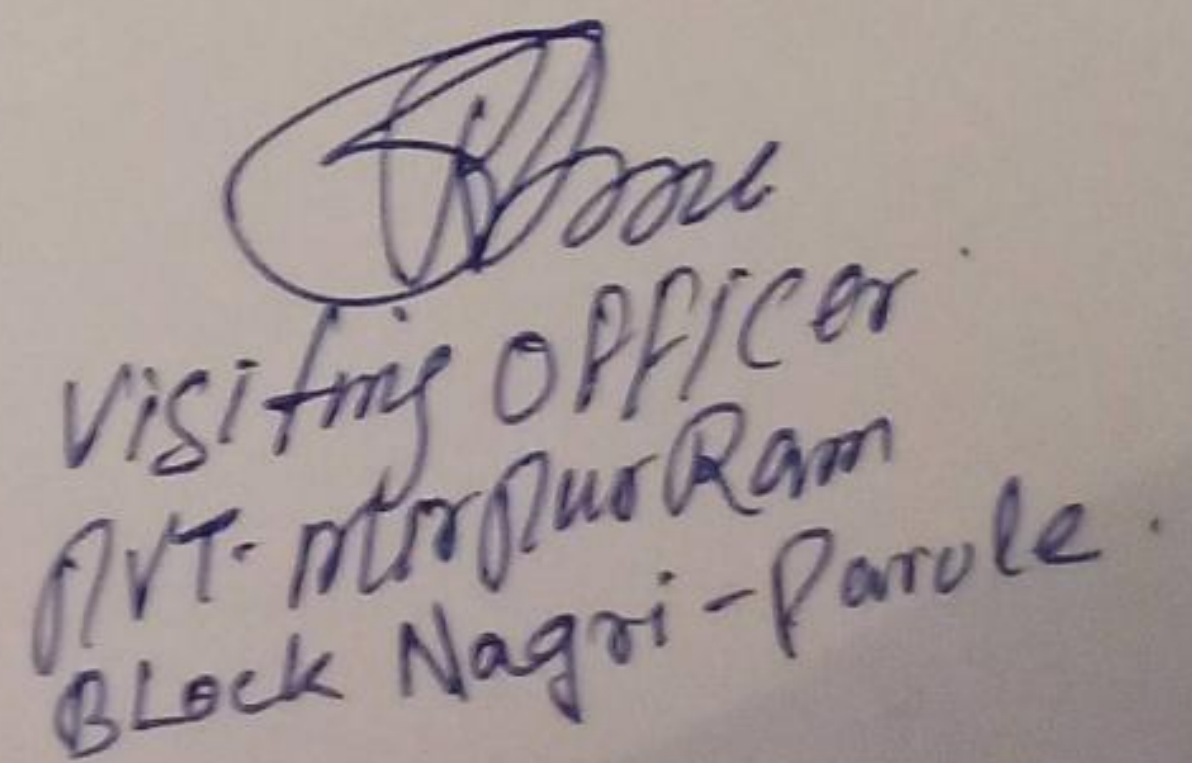 Visiting Officer
PVT. MirpurRam
BLock Nagri-Parole.